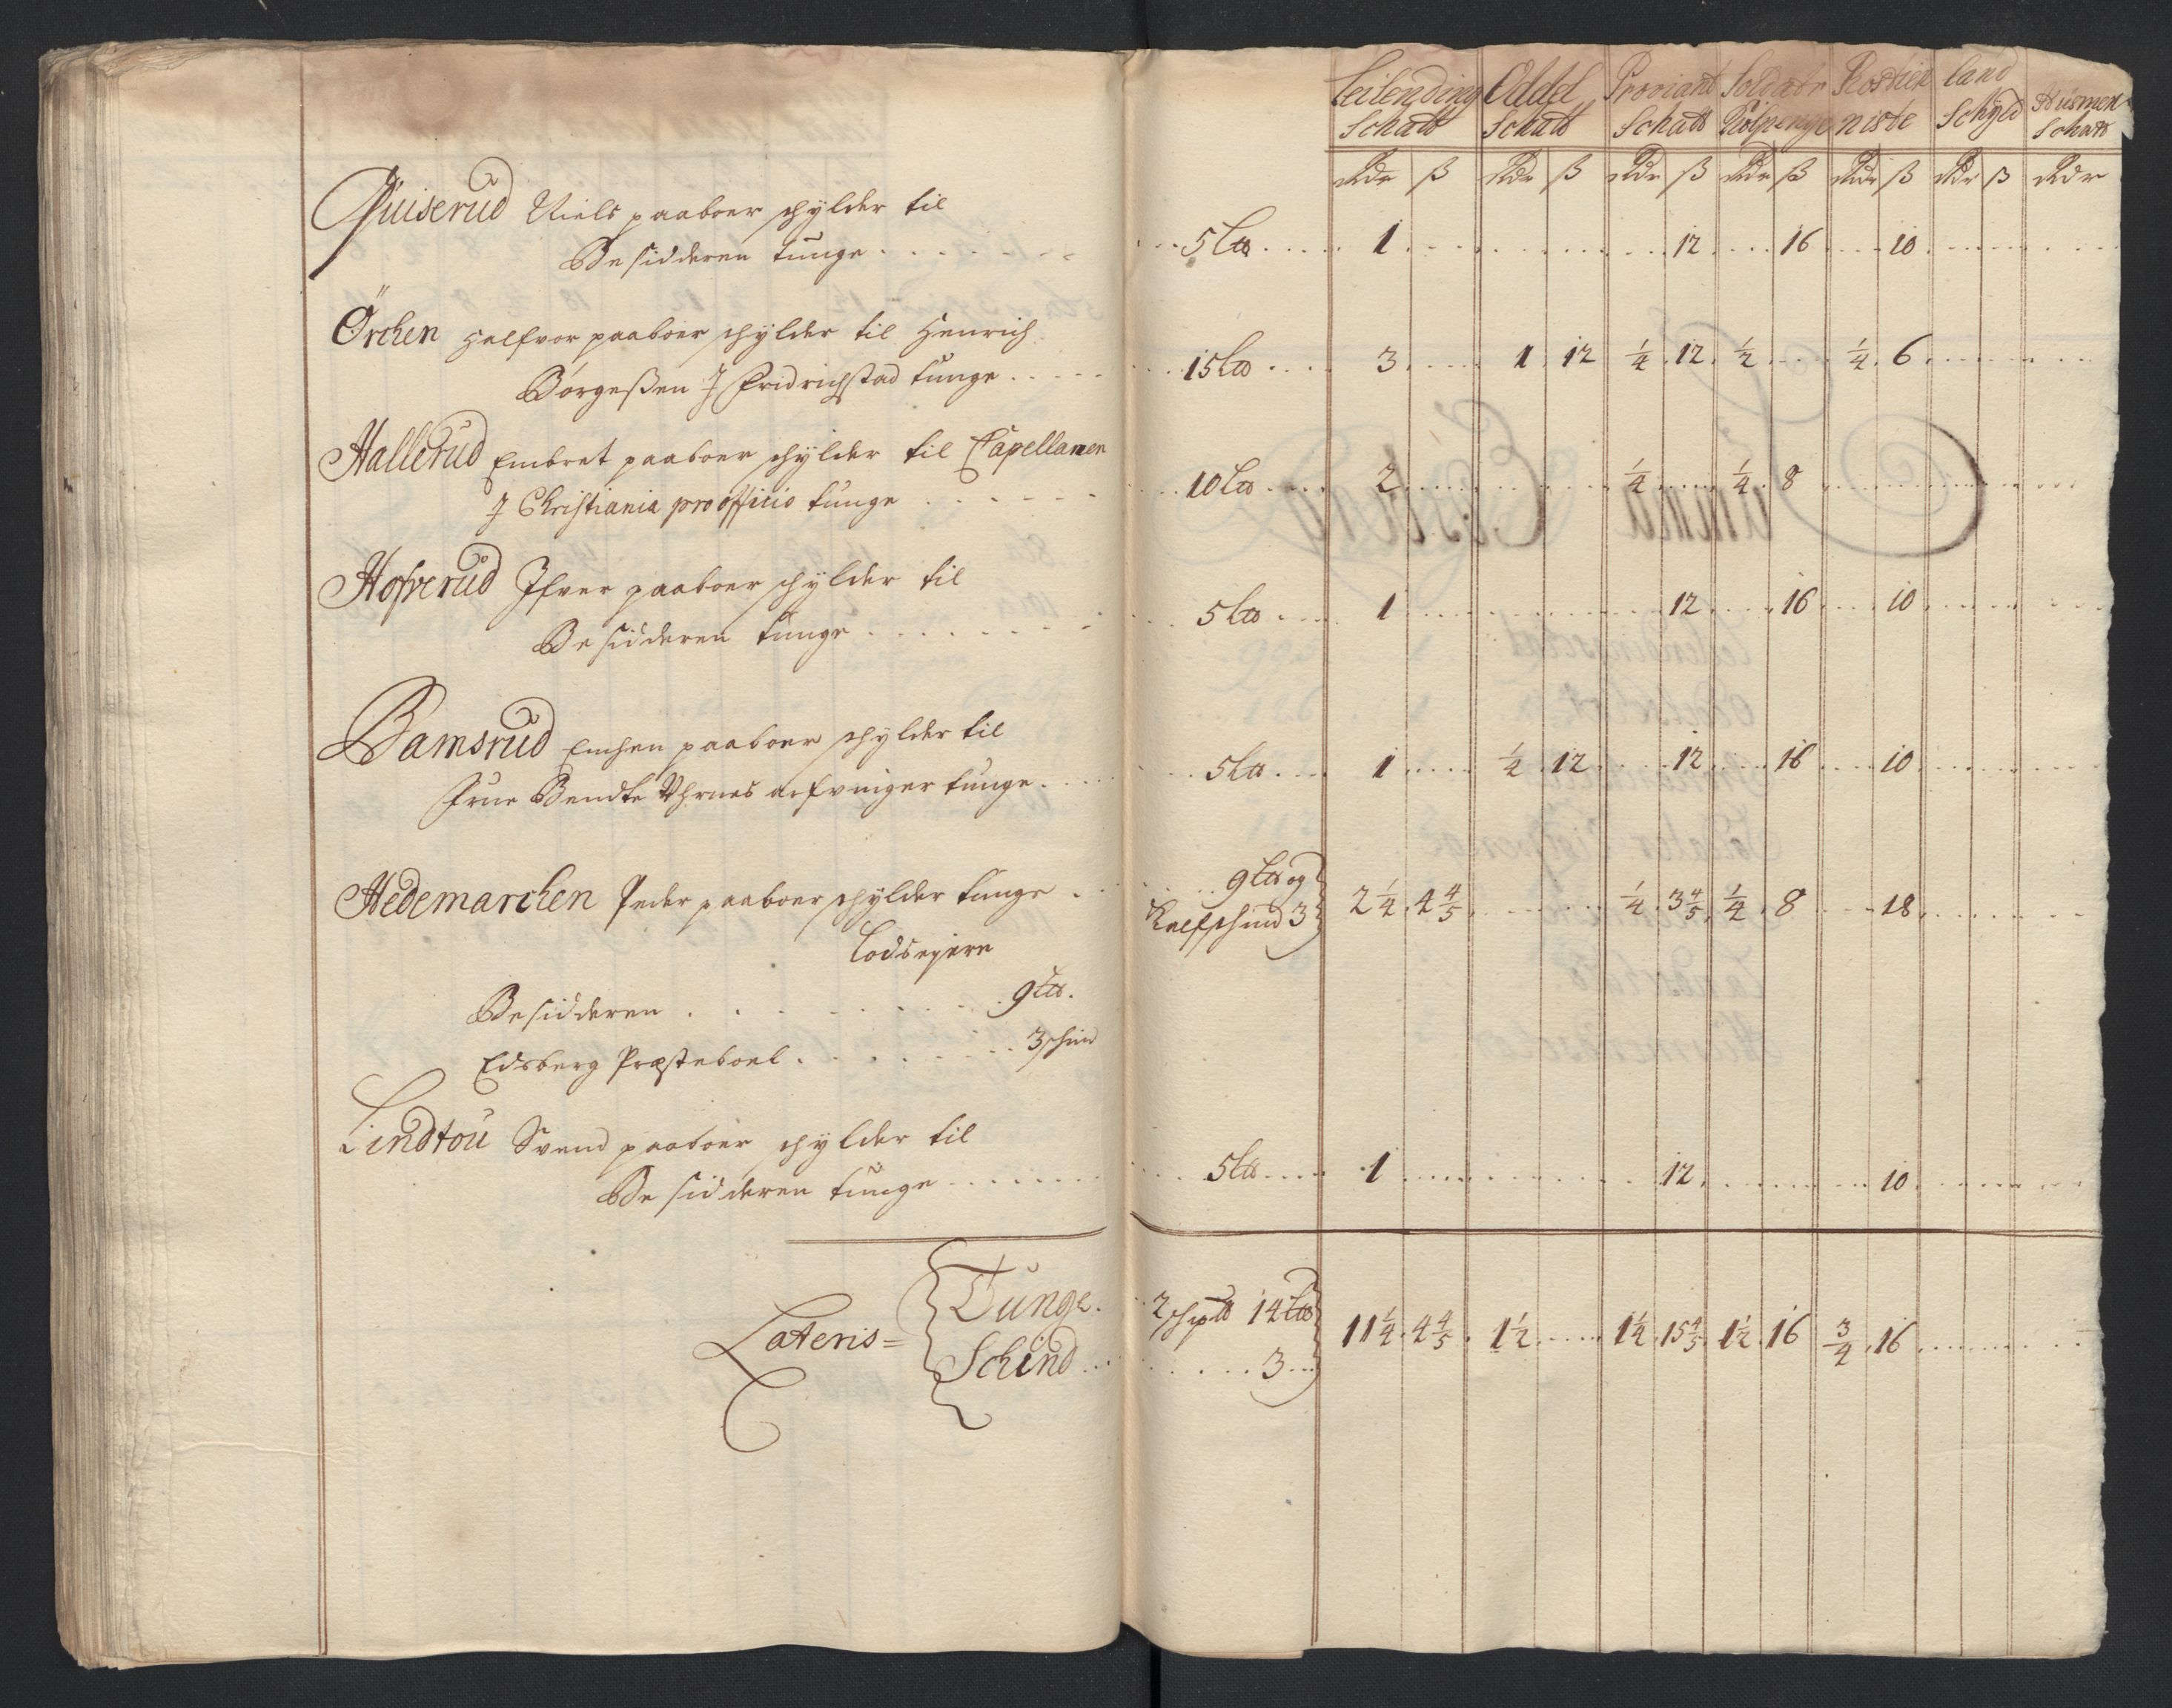 Leilending Schatt | Oddel Schatt | Proviant Schatt | Soldater Kölpenge | Rostieniste | Land Schyld | Husmen Schatt
Rdr | ß | Rdr | ß | Rdr | ß | Rdr | ß | Rdr | ß | Rdr | ß | Rdr
Quiserud Niels paaboer schylder til
Besidderen tunge . . . 5 L℔ . . . 1 . . . 12 . . . 16 . . . 10 . . .
Örchen Halfvor paaboer schylder til Henrich
Börgeßen J Fridrichstad tunge . . . 15 L℔ . . . 3 . . . 1 . 12 ¼ . 12 . ½ . . . ¼ . 6 . . .
Hallerud Embret paaboer schylder til Capellanen
J Christiania pro officio tunge . . . 10 L℔ . . . 2 . . . ¼ . . . ¼ . 8 . . .
Hofverud Jfver paaboer schylder til
Besidderen tunge . . . 5 L℔ . . . 1 . . . 12 . . . 16 . . . 10 . . .
Bamsrud paaboer schylder til
Frue Bendte arfvinger tunge . . . 5 L℔ . . . 1 . . . ¼ . 12 . . . 12 . . . 16 . . . 10 . . .
Hedemarchen Peder paaboer schylder tunge . . . 9 L℔ og
Kalfschind 3 } 2¼ . 4⅘ . . . ¼ . 3⅘ . ¼ . 8 . . . 18 . . .
Lodseyere
Besidderen . . . 9 L℔.
Edsberg Præsteboel . . . 3 schind
Lindtou Svend paaboer schylder til
Besidderen tunge . . . 5 L℔ . . . 1 . . . 12 . . . 10 . . .
Lateris = { Tunge . . . 2 schp℔ 14 L℔
Schind . . . 3 . . . } 11¼ . 4⅘ . 1½ . . . 1¼ . 15⅘ . 1½ . 16 ¾ . 16 . . .